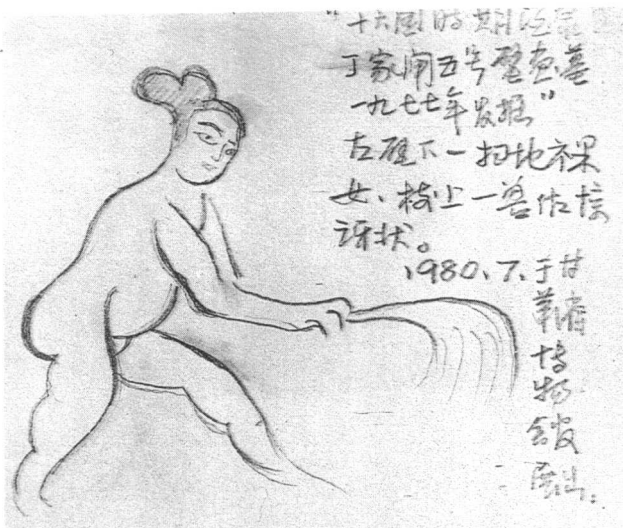 "十六国时期酒泉
丁家闸五号壁画墓
一九七七年发掘"
下一扫地裸
女、树上一兽作惊
讶状。
1980.7.于甘
肃省博物馆展出。